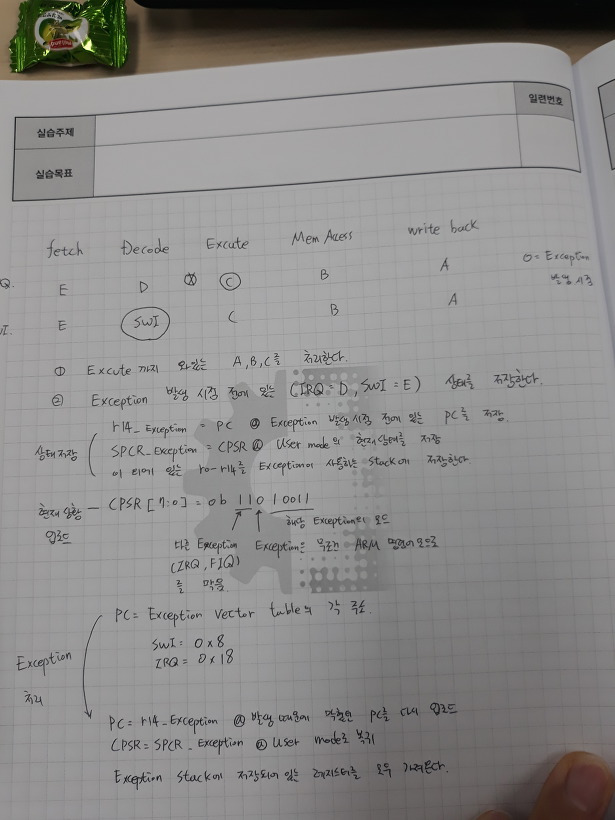 일련번호
실습주제
실습목표
fetch Decode Excute Mem Access write back
Q. E D C B A O = Exception 발생 시점
I. E SWI C B A
① Excute 까지 와있는 A, B, C를 처리한다.
② Exception 발생 시점 전에 있는 (IRQ = D, SWI = E) 상태를 저장한다.
상태저장
r14_Exception = PC @ Exception 발생시점 전에 있는 PC를 저장.
SPCR_Exception = CPSR @ User mode의 현재상태를 저장
이 외에 있는 r0-r14를 Exception이 사용하는 Stack에 저장한다.
현재 상황 업로드 — CPSR [7:0] = 0b 11010011
해당 Exception의 모드
다른 Exception (IRQ, FIQ) 를 막음.
Exception은 무조건 ARM 명령어 모드로
PC = Exception Vector table의 각 주소.
SWI = 0x8
IRQ = 0x18
Exception 처리
PC = r14_Exception @ 발생 때문에 막혔던 PC를 다시 업로드
CPSR = SPCR_Exception @ User mode로 복귀
Exception Stack에 저장되어 있는 레지스터를 모두 가져온다.